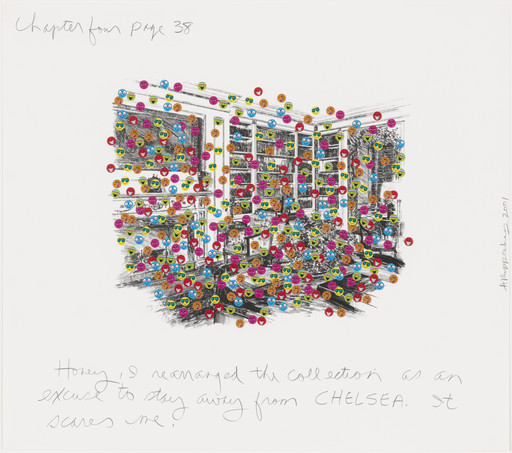 Chapter four page 38
Honey, I rearranged the collection as an
excuse to stay away from CHELSEA. It
scares me.
2001